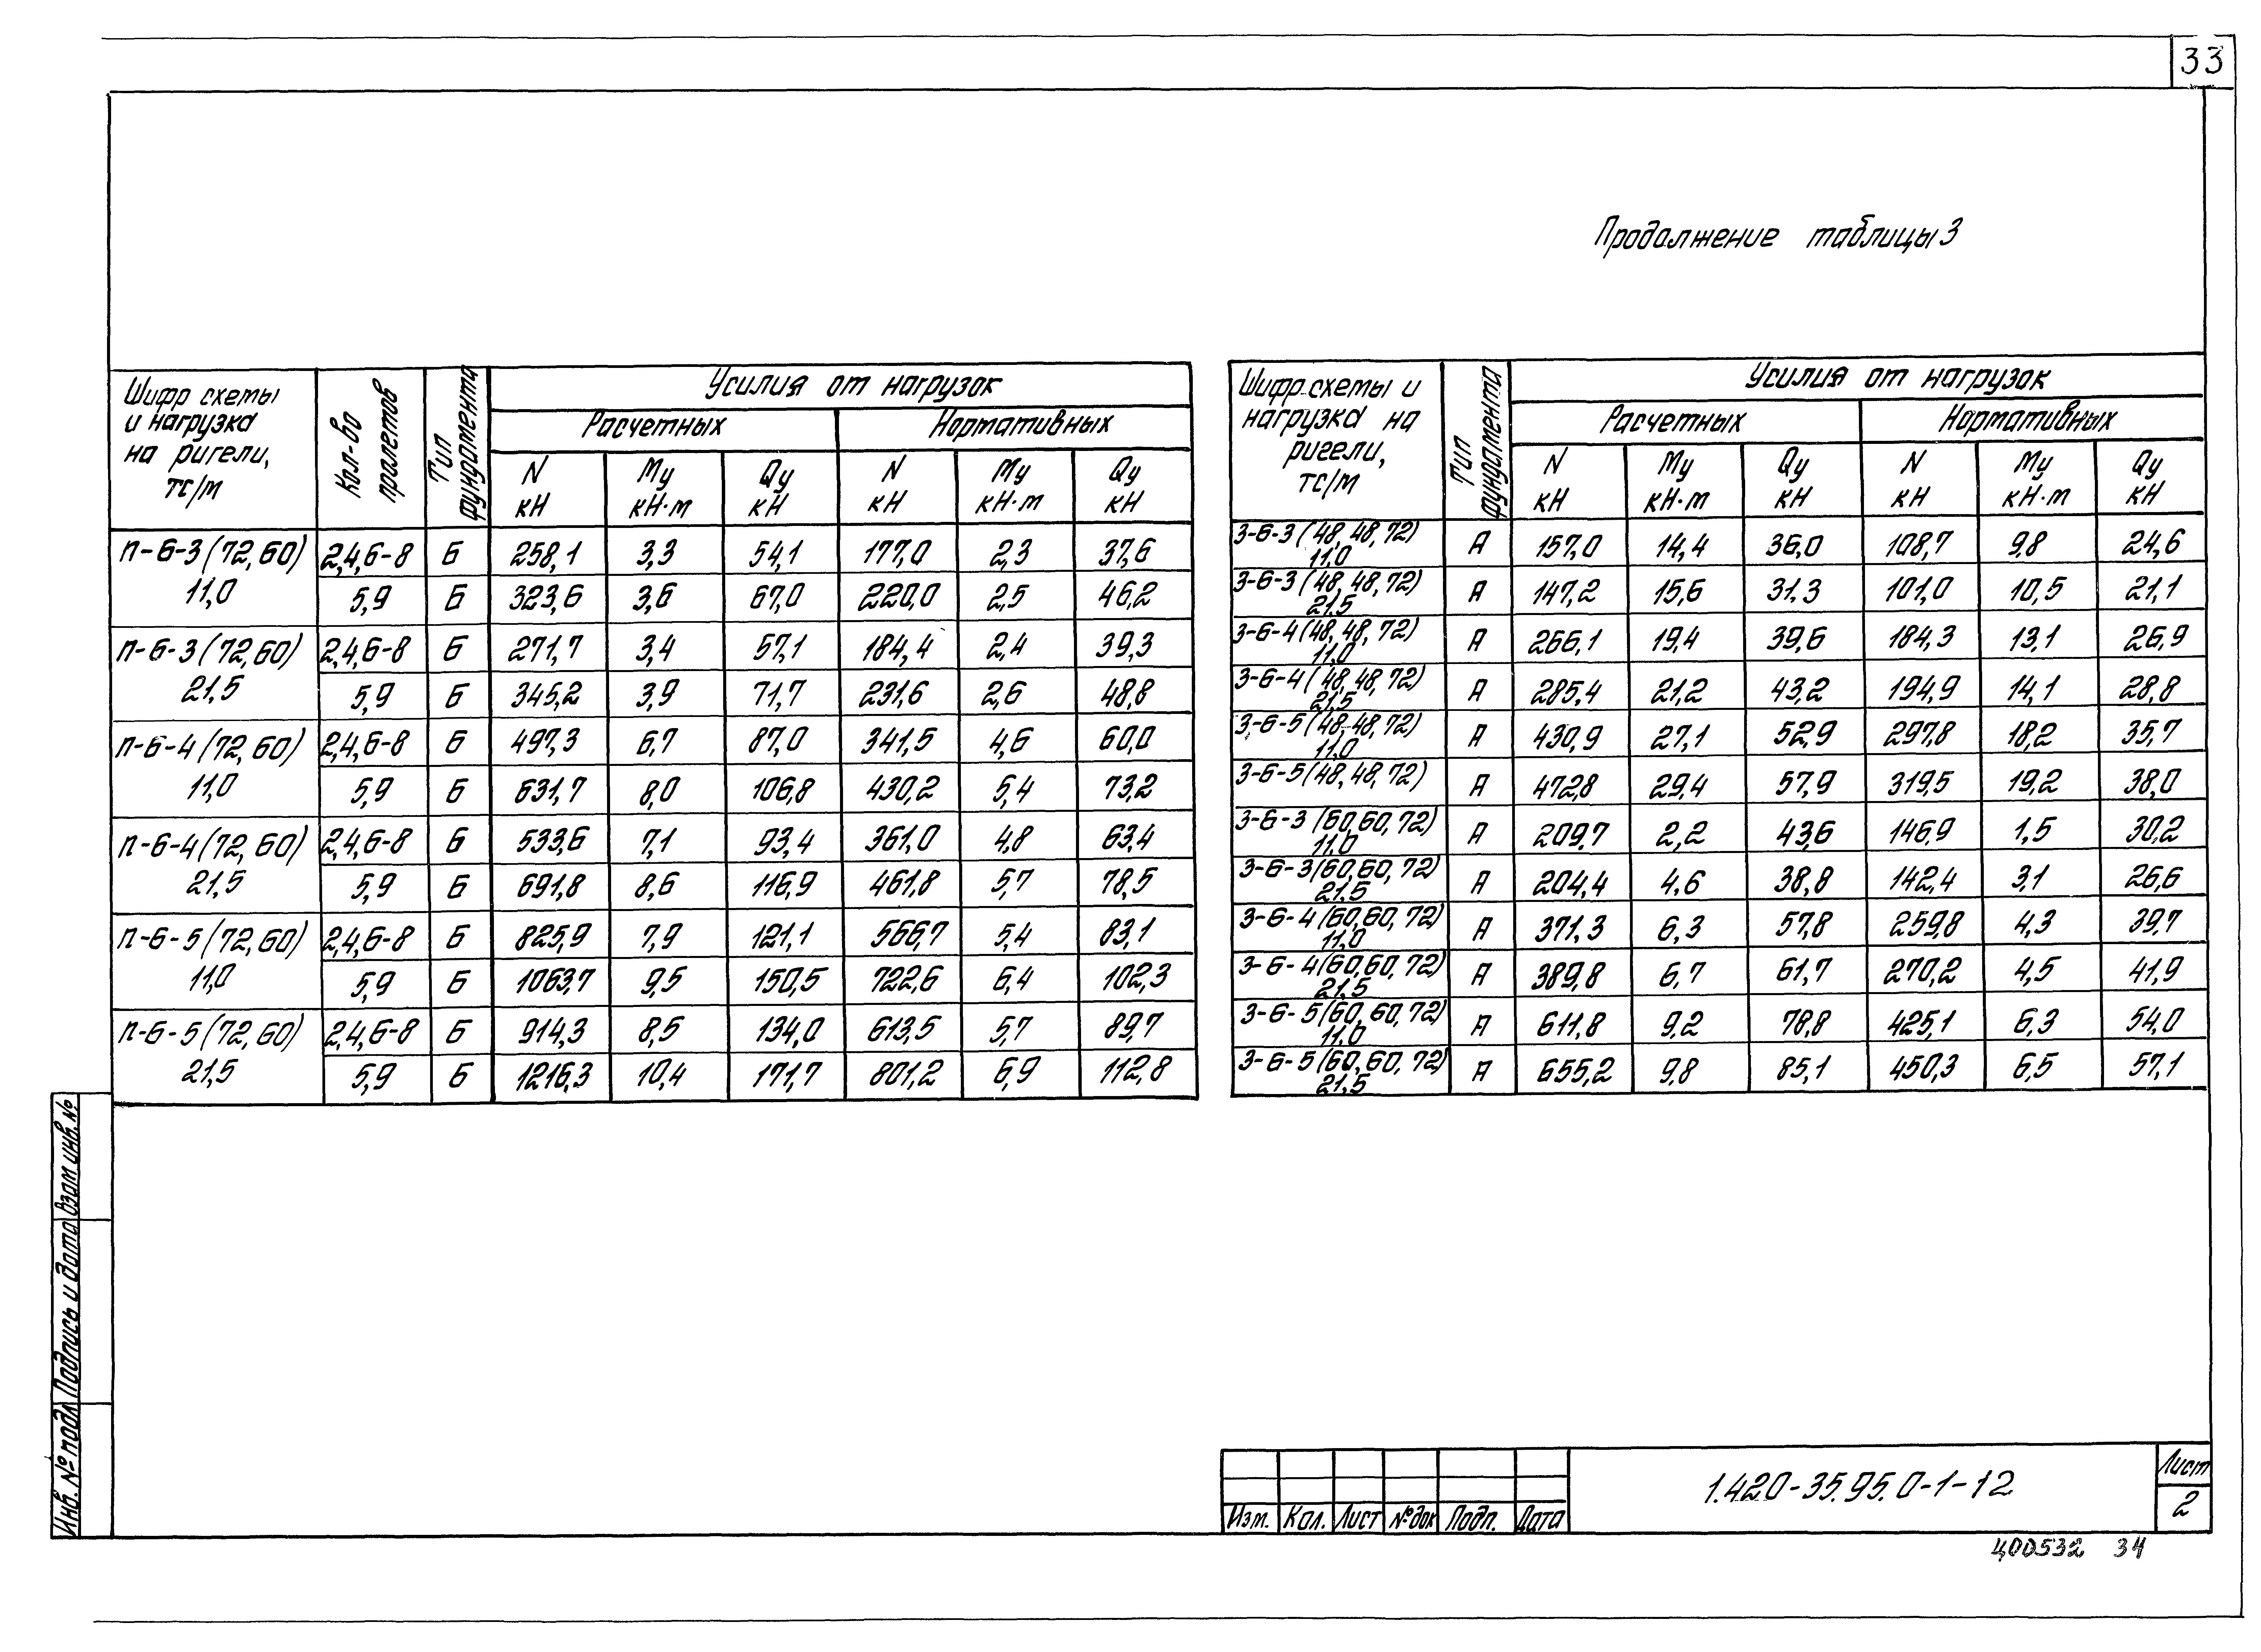 33
Продолжение таблицы 3
Шифр схемы и нагрузка на ригели, тс/м | Кол-во пролетов | Тип фундамента | Усилия от нагрузок
Расчетных | Нормативных
N кН | Му кН·м | Qу кН | N кН | Му кН·м | Qу кН
п-6-3 (72, 60) 11,0 | 2,4,6-8 | Б | 258,1 | 3,3 | 54,1 | 177,0 | 2,3 | 37,6
5,9 | Б | 323,6 | 3,6 | 67,0 | 220,0 | 2,5 | 46,2
п-6-3 (72, 60) 21,5 | 2,4,6-8 | Б | 271,7 | 3,4 | 57,1 | 184,4 | 2,4 | 39,3
5,9 | Б | 345,2 | 3,9 | 71,7 | 231,6 | 2,6 | 48,8
п-6-4 (72, 60) 11,0 | 2,4,6-8 | Б | 497,3 | 6,7 | 87,0 | 341,5 | 4,6 | 60,0
5,9 | Б | 631,7 | 8,0 | 106,8 | 430,2 | 5,4 | 73,2
п-6-4 (72, 60) 21,5 | 2,4,6-8 | Б | 533,6 | 7,1 | 93,4 | 361,0 | 4,8 | 63,4
5,9 | Б | 691,8 | 8,6 | 116,9 | 461,8 | 5,7 | 78,5
п-6-5 (72, 60) 11,0 | 2,4,6-8 | Б | 825,9 | 7,9 | 121,1 | 566,7 | 5,4 | 83,1
5,9 | Б | 1063,7 | 9,5 | 150,5 | 722,6 | 6,4 | 102,3
п-6-5 (72, 60) 21,5 | 2,4,6-8 | Б | 914,3 | 8,5 | 134,0 | 613,5 | 5,7 | 89,7
5,9 | Б | 1216,3 | 10,4 | 171,7 | 801,2 | 6,9 | 112,8
Шифр схемы и нагрузка на ригели, тс/м | Тип фундамента | Усилия от нагрузок
Расчетных | Нормативных
N кН | Му кН·м | Qу кН | N кН | Му кН·м | Qу кН
3-6-3 (48, 48, 72) 11,0 | А | 157,0 | 14,4 | 36,0 | 108,7 | 9,8 | 24,6
3-6-3 (48, 48, 72) 21,5 | А | 147,2 | 15,6 | 31,3 | 101,0 | 10,5 | 21,1
3-6-4 (48, 48, 72) 11,0 | А | 266,1 | 19,4 | 39,6 | 184,3 | 13,1 | 26,9
3-6-4 (48, 48, 72) 21,5 | А | 285,4 | 21,2 | 43,2 | 194,9 | 14,1 | 28,8
3-6-5 (48, 48, 72) 11,0 | А | 430,9 | 27,1 | 52,9 | 297,8 | 18,2 | 35,7
3-6-5 (48, 48, 72) | А | 472,8 | 29,4 | 57,9 | 319,5 | 19,2 | 38,0
3-6-3 (60, 60, 72) 11,0 | А | 209,7 | 2,2 | 43,6 | 146,9 | 1,5 | 30,2
3-6-3 (60, 60, 72) 21,5 | А | 204,4 | 4,6 | 38,8 | 142,4 | 3,1 | 26,6
3-6-4 (60, 60, 72) 11,0 | А | 371,3 | 6,3 | 57,8 | 259,8 | 4,3 | 39,7
3-6-4 (60, 60, 72) 21,5 | А | 389,8 | 6,7 | 61,7 | 270,2 | 4,5 | 41,9
3-6-5 (60, 60, 72) 11,0 | А | 611,8 | 9,2 | 78,8 | 425,1 | 6,3 | 54,0
3-6-5 (60, 60, 72) 21,5 | А | 655,2 | 9,8 | 85,1 | 450,3 | 6,5 | 57,1
Инв. № подл | Подпись и дата | Взам инв. №
Изм. | Кол. | Лист | № док | Подп. | Дата
1.420-35.95.0-1-12
Лист
2
400532 34